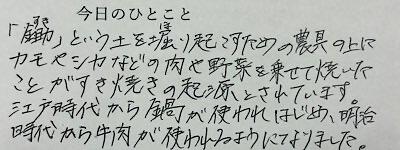 今日のひとこと
すき ほ
「鋤」という土を堀り起こすための農具の上に
カモやシカなどの肉や野菜を乗せて焼いた
ことがすき焼きの起源とされています。
江戸時代から鍋が使われはじめ、明治
時代から牛肉が使われるようになりました。